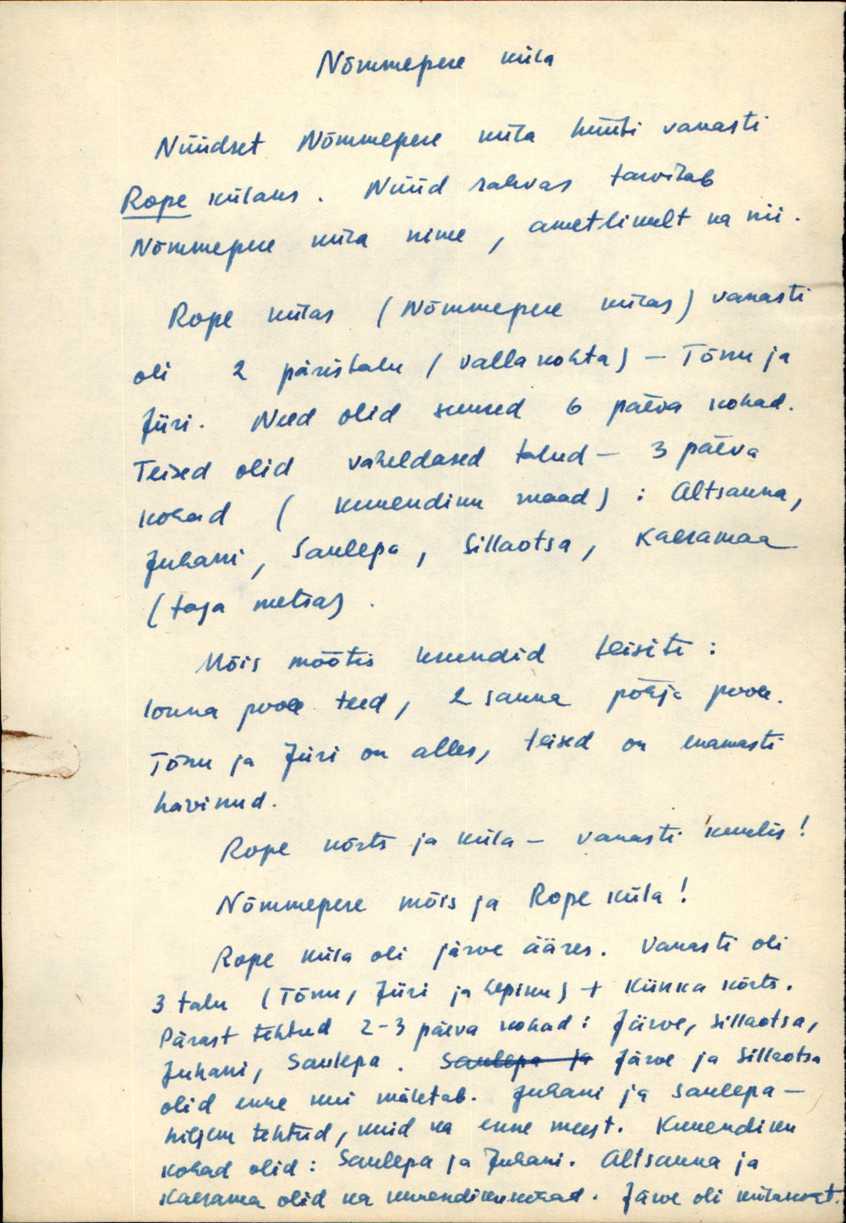 Nõmmepere küla
Nüüdset Nõmmepere küla hüüti vanasti
Rope külaks. Nüüd rahvas tarvitab
Nõmmepere küla nime, ametlikult ka nii.
Rope külas (Nõmmepere külas) vanasti
oli 2 päristalu (vallakohta) — Tõnu ja
Jüri. Need olid suured 6 päeva kohad.
Teised olid vaheldased talud — 3 päeva
kohad ( kuuendiku maad) : Altsauna,
Juhani, Saulepa, Sillaotsa, Kaeramaa
(taga metsa).
Mõis mõõtis kuendid teisiti :
lõuna poole teed, 2 sauna põhja poole.
Tõnu ja Jüri on alles, teised on enamasti
hävinud.
Rope kõrts ja küla — vanasti kuulis!
Nõmmepere mõis ja Rope küla!
Rope küla oli järve ääres. Vanasti oli
3 talu (Tõnu, Jüri ja Lepiku) + Künka kõrts.
Pärast tehtud 2-3 päeva kohad : Järve, Sillaotsa,
Juhani, Saulepa. Saulepa ja Järve ja Sillaotsa
olid enne kui mäletab. Juhani ja Saulepa —
hiljem tehtud, kuid ka enne meest. Kuuendiku
kohad olid : Saulepa ja Juhani. Altsauna ja
Kaerama olid ka kuuendikukohad. Järve oli